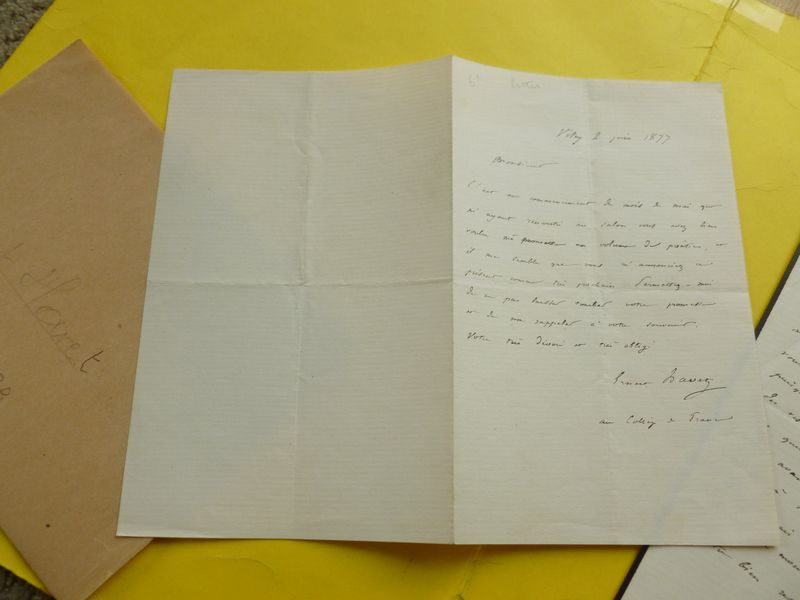 Havet
Vitry 2 juin 1877
Monsieur
C'est au commencement du mois de mai que
m'ayant rencontré au salon vous avez bien
voulu me promettre un volume de poésies, et
il me semble que vous m'annonciez ce
présent comme très prochain. Permettez-moi
de ne pas laisser tomber votre promesse
et de me rappeler à votre souvenir.
Votre très dévoué et très obligé
Ernest Havet
au Collège de France